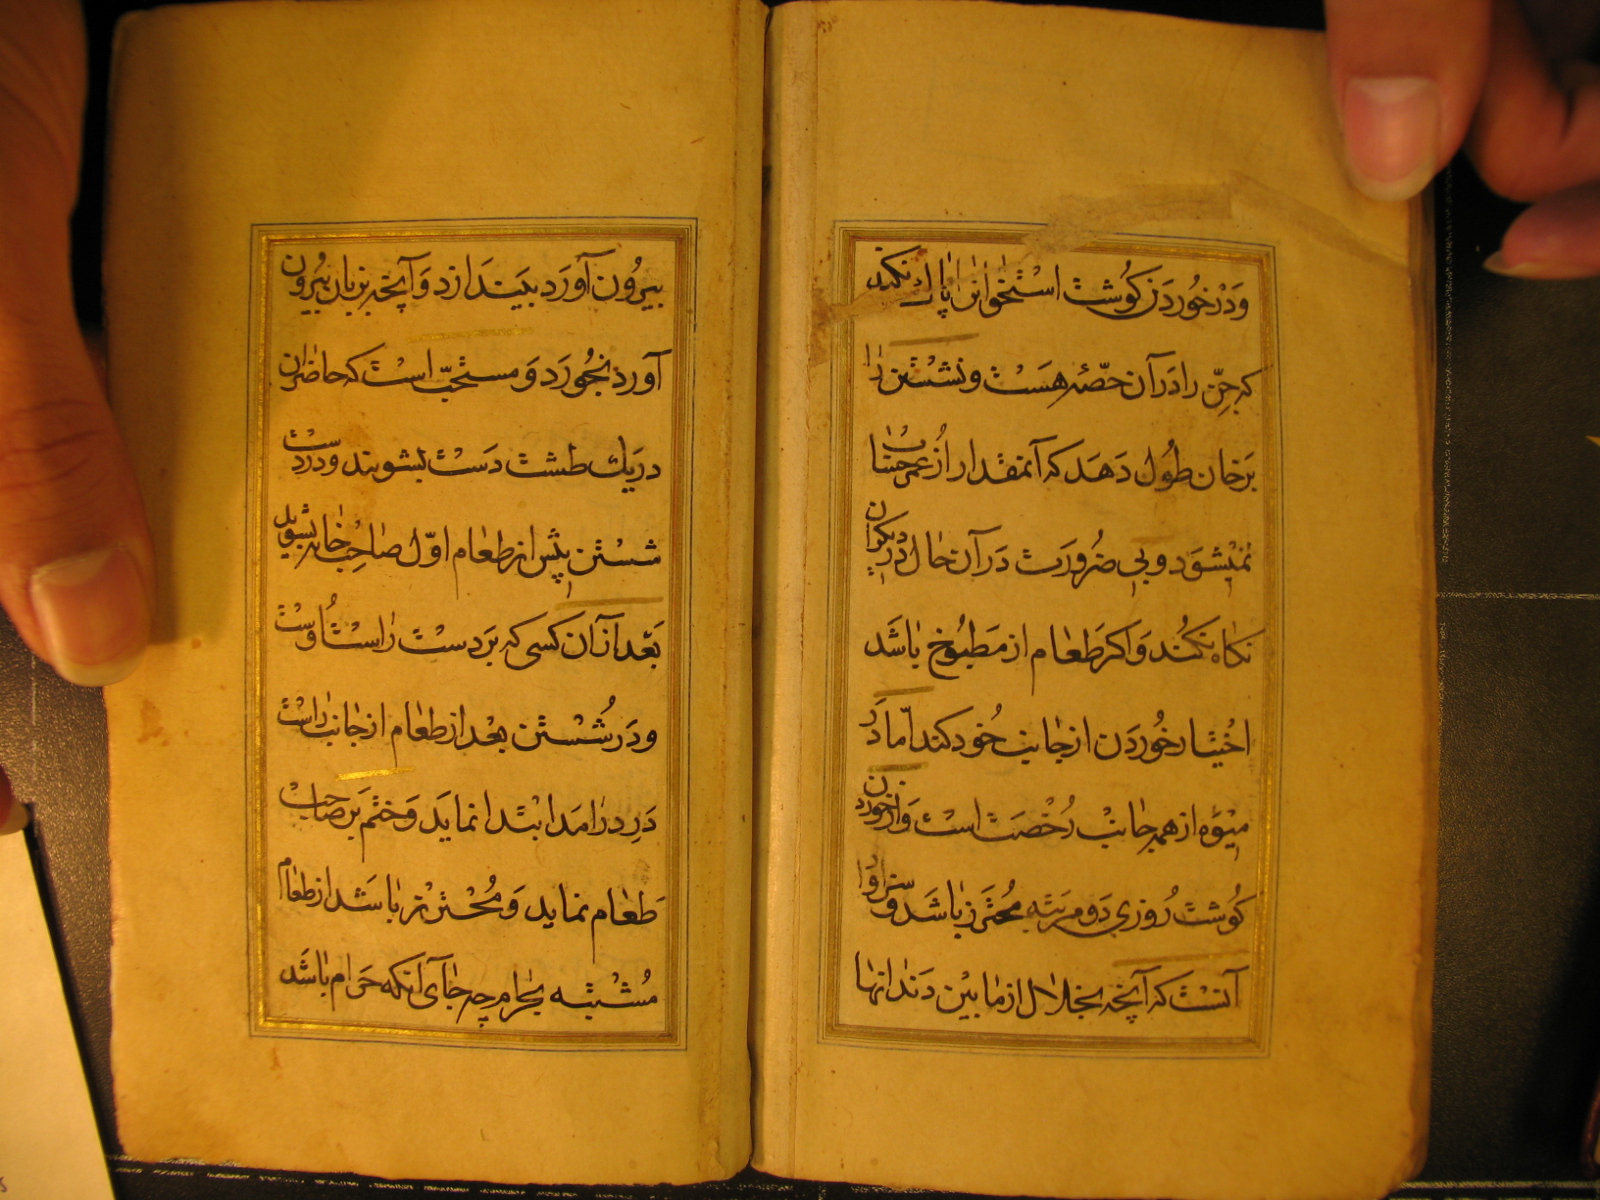 ودر خوردن کوشت استخوانرا پاک نکند
که جن را در آن حصّهٔ هست و نشستن را
بر خان طول دهد که آنمقدار از عمر حساب
نمیشود و بی ضرورت در آن حال در دیکران
نکاه نکند و اکر طعام از مطبوخ باشد
اختیار خوردن از جانب خود کند امّا در
میوه از همه جانب رخصت است و از خوردن
کوشت روزی دو مرتبه محترز باشد و سزاوار
آنست که آنچه بخلال از مابین دندانها
بیرون آورد بیندازد و آنچه بزبان بیرون
آورد بخورد و مستحبّ است که حاضران
در یک طشت دست بشویند و در دست
شستن پیش از طعام اوّل صاحب خانه بشوید
بعد از آن کسی که بر دست راست اوست
و در شستن بعد از طعام از جانب راست
در درامد ابتدا نماید و ختم بر صاحب
طعام نماید و محترز باشد از طعام
مشتبه بحرام چه جای آنکه حرام باشد